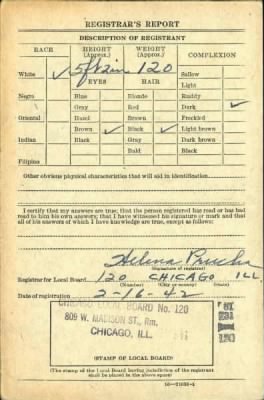 REGISTRAR'S REPORT
DESCRIPTION OF REGISTRANT
RACE HEIGHT (Approx.) WEIGHT (Approx.) COMPLEXION
White ✓ 5ft 2in 120 Sallow
EYES HAIR Light
Negro Blue Blonde Ruddy
Gray Red Dark ✓
Oriental Hazel Brown Freckled
Brown ✓ Black ✓ Light brown
Indian Black Gray Dark brown
Bald Black
Filipino
Other obvious physical characteristics that will aid in identification
I certify that my answers are true; that the person registered has read or has had
read to him his own answers; that I have witnessed his signature or mark and that
all of his answers of which I have knowledge are true, except as follows:
Helena
(Signature of registrar)
Registrar for Local Board 120 CHICAGO ILL
(Number) (City or county) (State)
Date of registration 2-16-42
BOARD No. 120
809 W. MADISON ST., Rm.
CHICAGO, ILL.
(STAMP OF LOCAL BOARD)
(The stamp of the Local Board having jurisdiction of the registrant
shall be placed in the above space)
16—21630-1